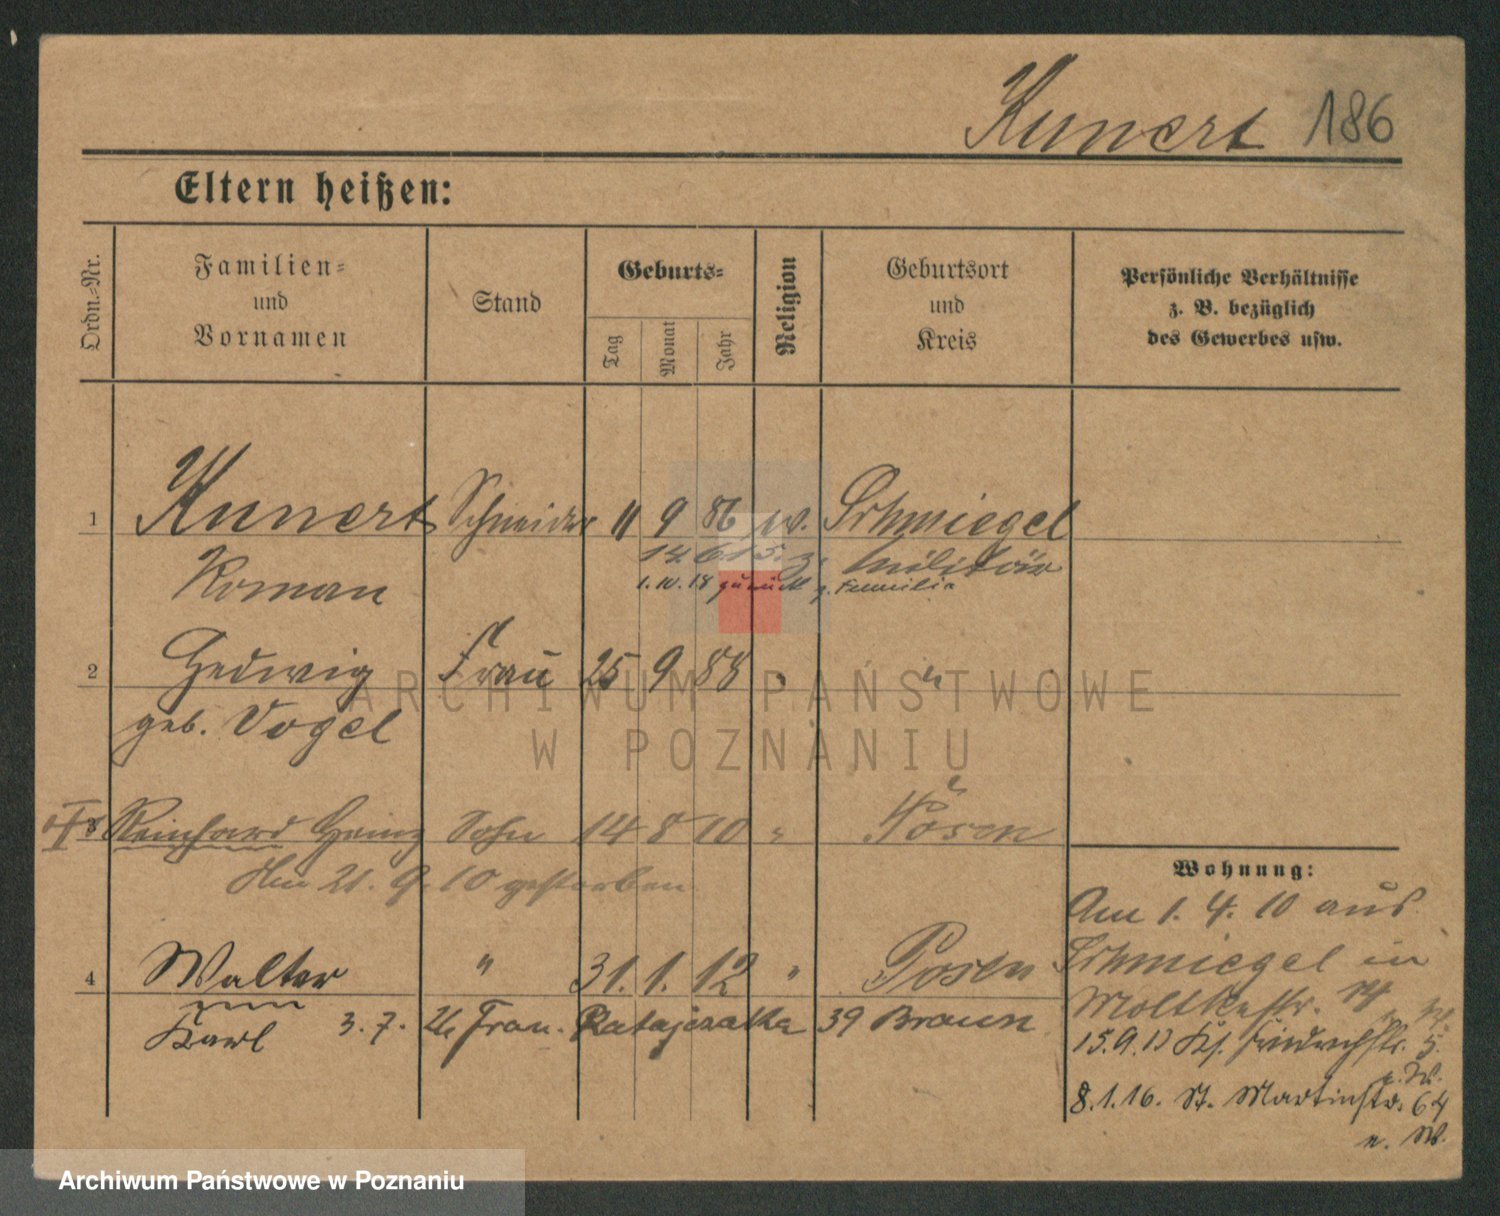 Kunert 186
Eltern heißen:
Ordn.-Nr.
Familien- und Vornamen
Stand
Geburts-
Tag
Monat
Jahr
Religion
Geburtsort und Kreis
Persönliche Verhältnisse z. B. bezüglich des Gewerbes usw.
1 Kunert Schneider 11 9 86 ev. Schmiegel
14 6 15. z. Militär
Roman 1. 10. 18 zurück z. Familie
2 Hedwig Frau 25 9 88 " "
geb. Vogel
3 Reinhard Heinz Sohn 14 8 10 " Posen
Am 21. 9. 10 gestorben
4 Walter " 31. 1. 12 " Posen
Karl 3. 7. Frau. Ratajczaka 39 Braun
Wohnung:
Am 1. 4. 10 aus
Schmiegel in
Moltkestr. 14
15. 9. 13 Friedrichstr. 5.
e. W.
8. 1. 16. St. Martinstr. 64
e. W.
ARCHIWUM PAŃSTWOWE
W POZNANIU
Archiwum Państwowe w Poznaniu